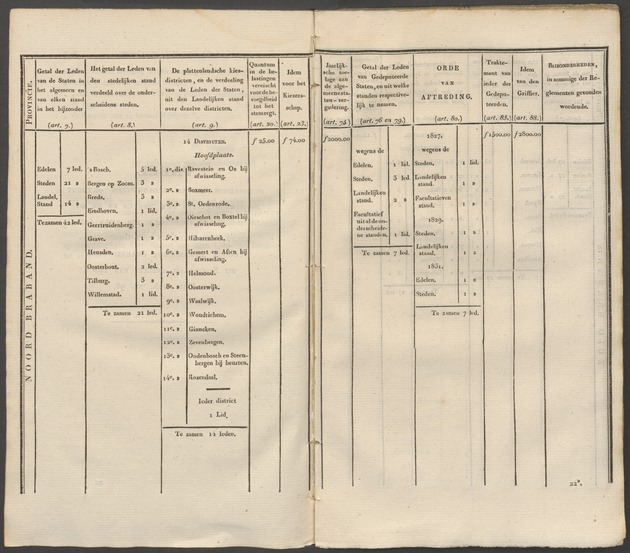 PROVINCIE.
Getal der Leden
van de Staten in
het algemeen en
van elken stand
in het bijzonder
(art. 7.)
Het getal der Leden van
den stedelijken stand
verdeeld over de onder-
scheidene steden.
(art. 8.)
De plattenlandsche kies-
districten, en de verdeeling
van de Leden der Staten,
uit den Landelijken stand
over dezelve districten.
(art. 9.)
Quantum
in de be-
lastingen
vereischt
voor de be-
voegdheid
tot het
stemregt.
(art. 20.)
Idem
voor het
Kiezers-
schap.
(art. 23.)
Jaarlijk-
sche toe-
lage aan
de alge-
meene sta-
ten-ver-
gadering.
(art. 74.)
Getal der Leden
van Gedeputeerde
Staten, en uit welke
standen respectieve-
lijk te nemen.
(art. 76 en 79.)
ORDE
VAN
AFTREDING.
(art. 80.)
Trakte-
ment van
ieder der
Gedepu-
teerden.
(art. 83.)
Idem
van den
Griffier.
(art. 88.)
BIJZONDERHEDEN,
in sommige der Re-
glementen gevonden
wordende.
NOORD BRABAND.
Edelen 7 led.
Steden 21 »
Landel.
Stand 14 »
Te zamen 42 led.
's Bosch. 5 led.
Bergen op Zoom. 3 »
Breda. 3 »
Eindhoven. 1 lid.
Geertruidenberg. 1 »
Grave. 1 »
Heusden. 1 »
Oosterhout. 2 led.
Tilburg. 3 »
Willemstad. 1 lid.
Te zamen 21 led.
14 DISTRICTEN.
Hoofdplaats.
1e. dis Ravestein en Os bij
afwisseling.
2e. » Boxmeer.
3e. » St. Oedenrode.
4e. » Oirschot en Boxtel bij
afwisseling.
5e. » Hilvarenbeek.
6e. » Gemert en Asten bij
afwisseling.
7e. » Helmond.
8e. » Oosterwijk.
9e. » Waalwijk.
10e. » Woudrichem.
11e. » Ginneken.
12e. » Zevenbergen.
13e. » Oudenbosch en Steen-
bergen bij beurten.
14e. » Rozendaal.
Ieder district
1 Lid.
Te zamen 14 leden.
f 25.00
f 74.00
f 2000.00
wegens de
Edelen. 1 lid.
Steden. 3 led.
Landelijken
stand. 2 »
Facultatief
uit al de on-
derscheide-
ne standen. 1 lid.
Te zamen 7 led.
1827.
wegens de
Steden. 1 lid.
Landelijken
stand. 1 »
Facultatieven
stand. 1 »
1829.
Steden. 1 »
Landelijken
stand. 1 »
1831.
Edelen. 1 »
Steden. 1 »
Te zamen 7 led.
f 1500.00
f 2800.00